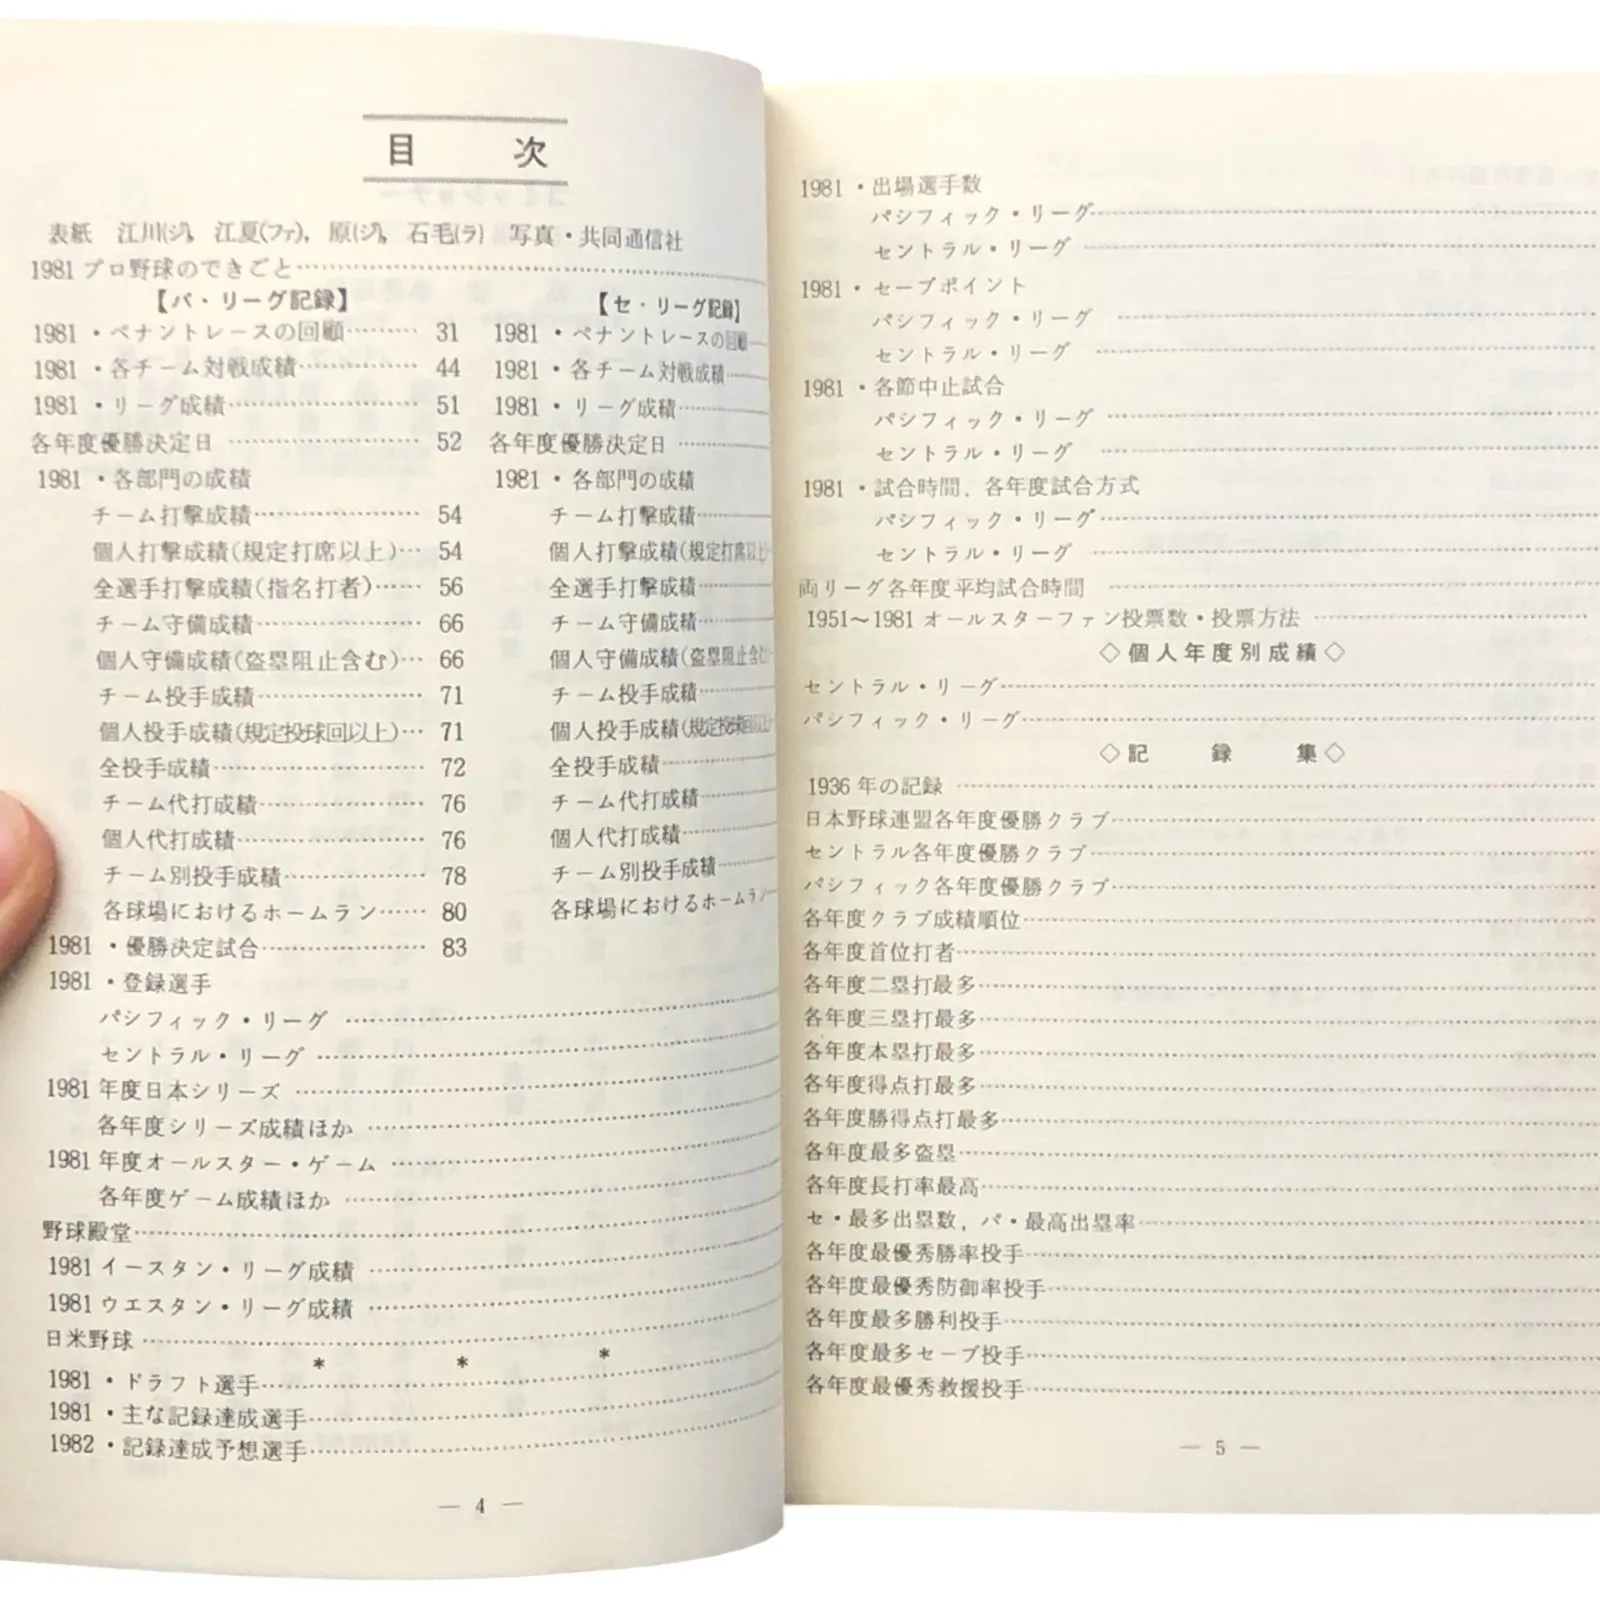 目 次
表紙 江川(ジ), 江夏(ファ), 原(ジ), 石毛(ラ) 写真・共同通信社
1981プロ野球のできごと
【パ・リーグ記録】
1981・ペナントレースの回顧……… 31
1981・各チーム対戦成績……… 44
1981・リーグ成績……… 51
各年度優勝決定日……… 52
1981・各部門の成績
チーム打撃成績……… 54
個人打撃成績(規定打席以上)… 54
全選手打撃成績(指名打者)…… 56
チーム守備成績……… 66
個人守備成績(盗塁阻止含む)… 66
チーム投手成績……… 71
個人投手成績(規定投球回以上)… 71
全投手成績……… 72
チーム代打成績……… 76
個人代打成績……… 76
チーム別投手成績……… 78
各球場におけるホームラン…… 80
1981・優勝決定試合……… 83
【セ・リーグ記録】
1981・ペナントレースの回顧
1981・各チーム対戦成績
1981・リーグ成績
各年度優勝決定日
1981・各部門の成績
チーム打撃成績
個人打撃成績(規定打席以上)
全選手打撃成績
チーム守備成績
個人守備成績(盗塁阻止含む)
チーム投手成績
個人投手成績(規定投球回以上)
全投手成績
チーム代打成績
個人代打成績
チーム別投手成績
各球場におけるホームラン
1981・登録選手
パシフィック・リーグ
セントラル・リーグ
1981年度日本シリーズ
各年度シリーズ成績ほか
1981年度オールスター・ゲーム
各年度ゲーム成績ほか
野球殿堂
1981イースタン・リーグ成績
1981ウエスタン・リーグ成績
日米野球
* * *
1981・ドラフト選手
1981・主な記録達成選手
1982・記録達成予想選手
— 4 —
1981・出場選手数
パシフィック・リーグ
セントラル・リーグ
1981・セーブポイント
パシフィック・リーグ
セントラル・リーグ
1981・各節中止試合
パシフィック・リーグ
セントラル・リーグ
1981・試合時間, 各年度試合方式
パシフィック・リーグ
セントラル・リーグ
両リーグ各年度平均試合時間
1951〜1981オールスターファン投票数・投票方法
◇個人年度別成績◇
セントラル・リーグ
パシフィック・リーグ
◇記 録 集◇
1936年の記録
日本野球連盟各年度優勝クラブ
セントラル各年度優勝クラブ
パシフィック各年度優勝クラブ
各年度クラブ成績順位
各年度首位打者
各年度二塁打最多
各年度三塁打最多
各年度本塁打最多
各年度得点打最多
各年度勝得点打最多
各年度最多盗塁
各年度長打率最高
セ・最多出塁数, パ・最高出塁率
各年度最優秀勝率投手
各年度最優秀防御率投手
各年度最多勝利投手
各年度最多セーブ投手
各年度最優秀救援投手
— 5 —